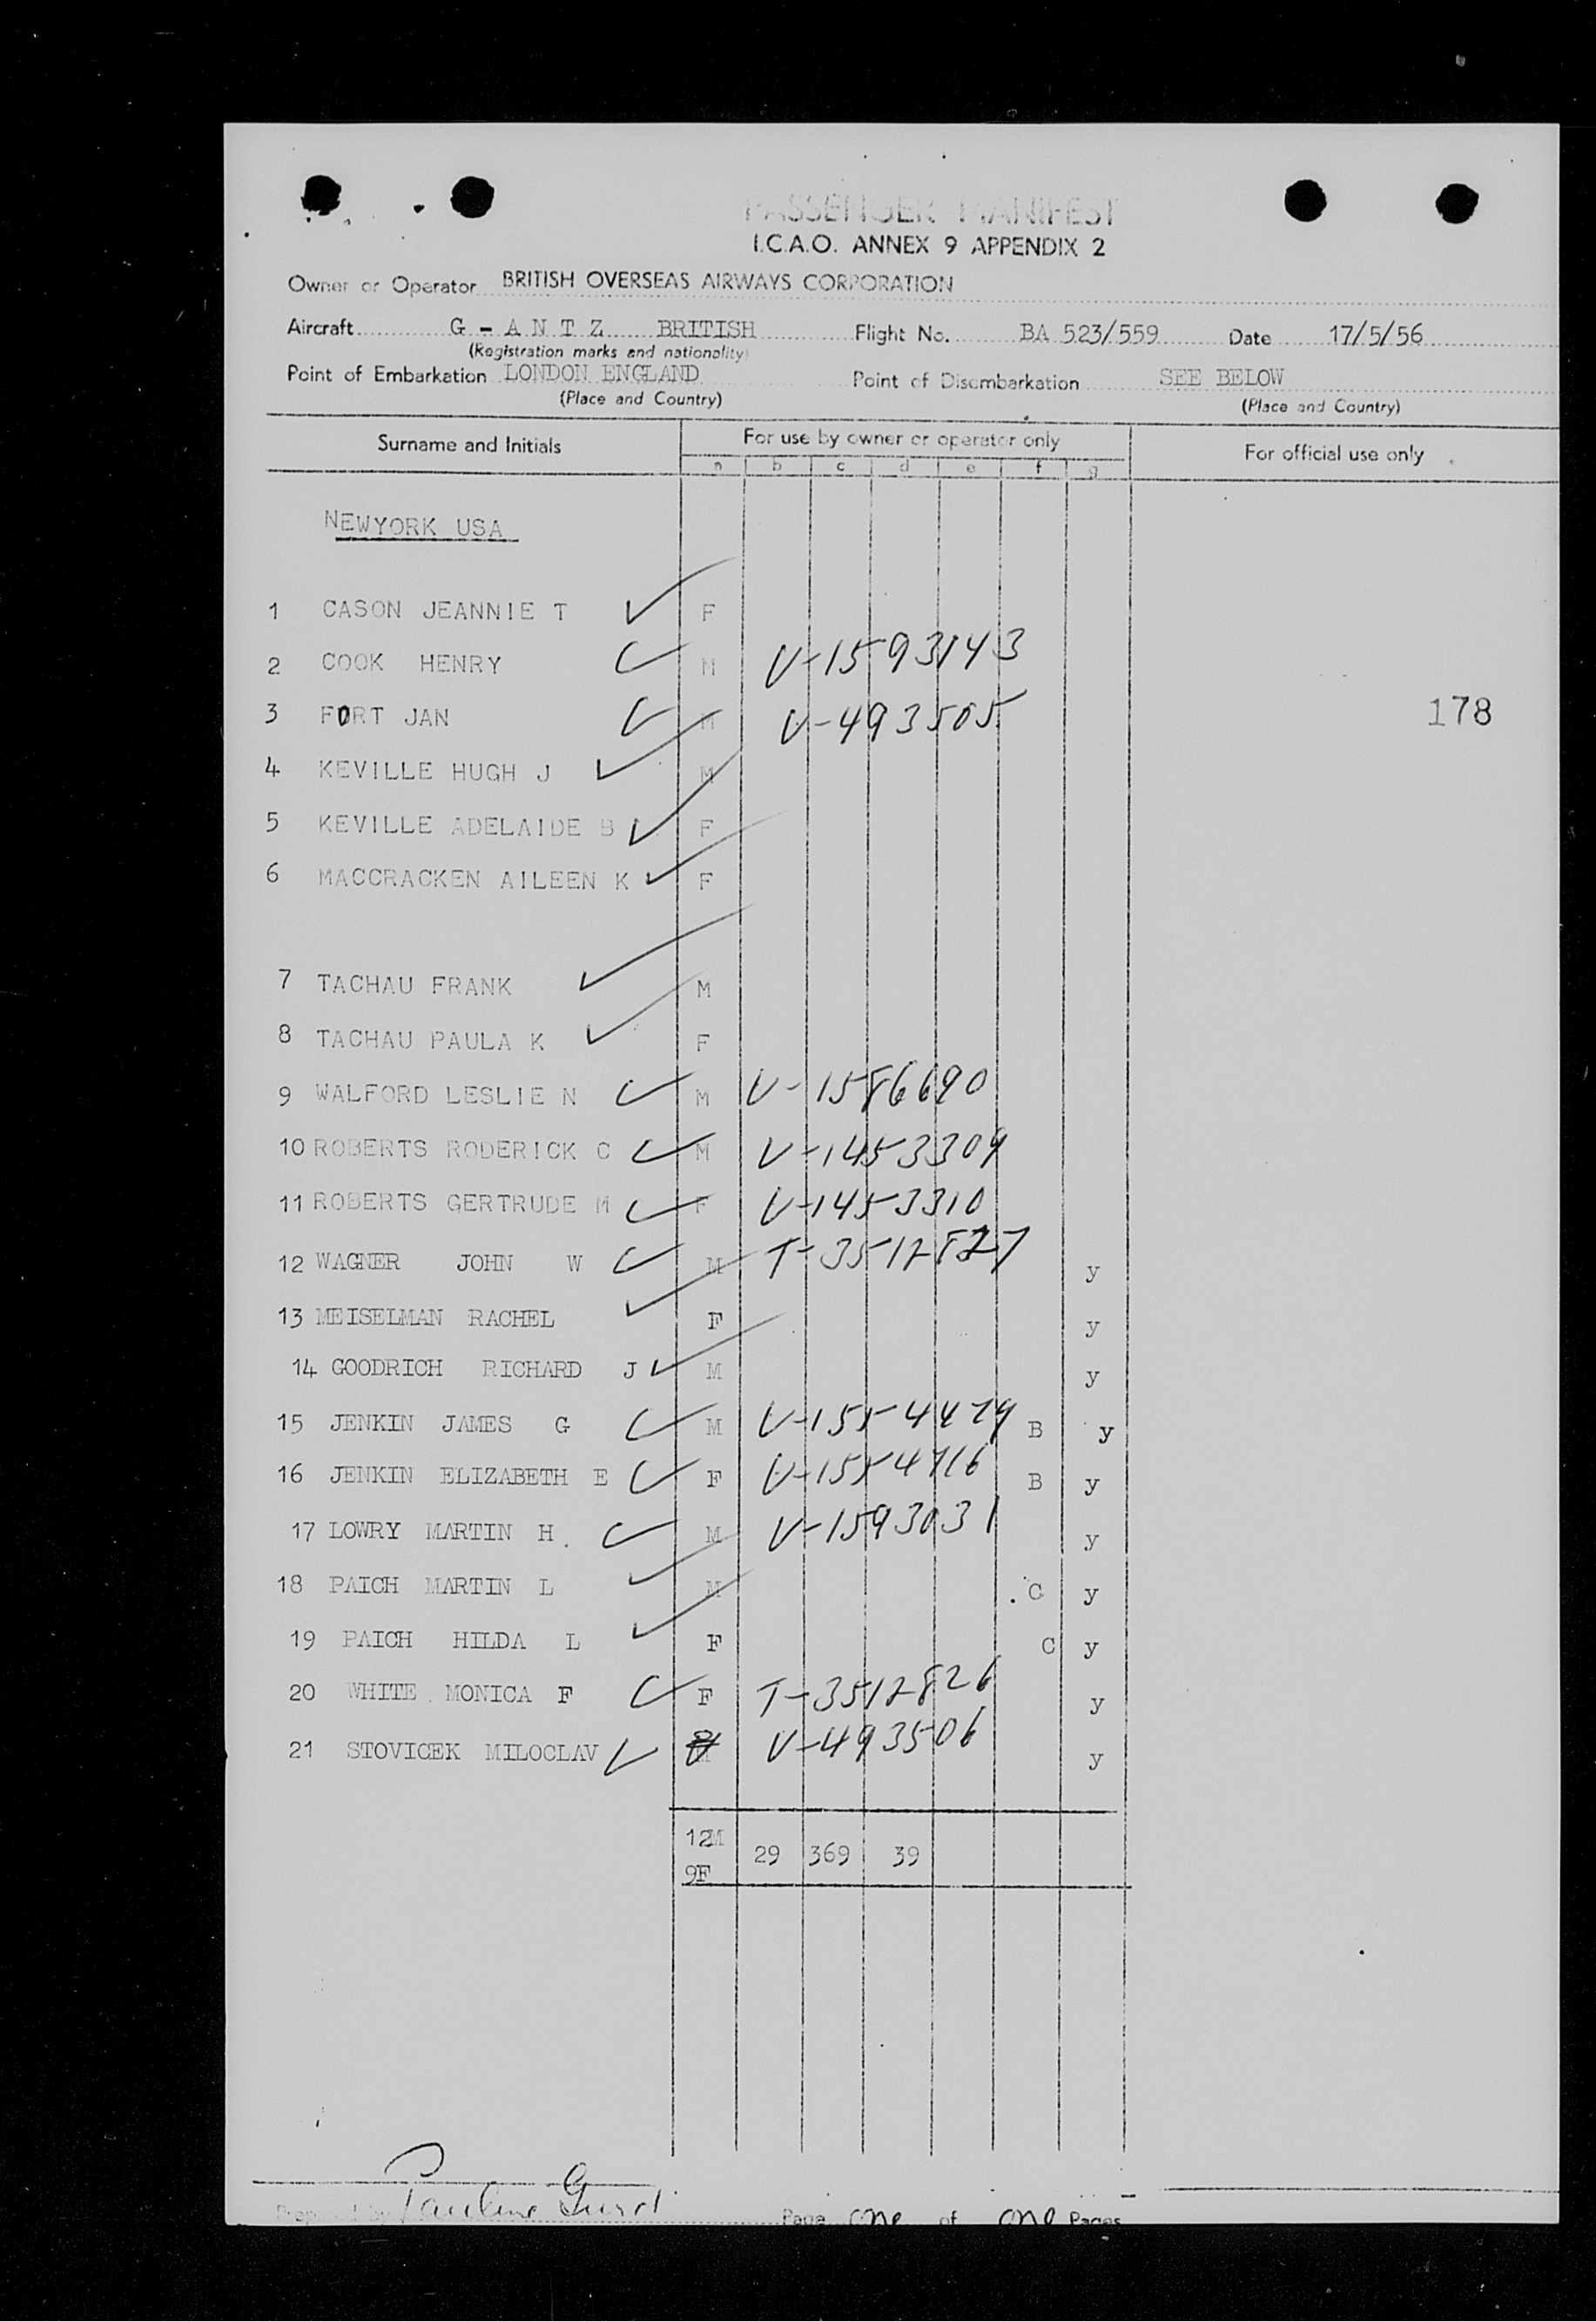 PASSENGER MANIFEST
I.C.A.O. ANNEX 9 APPENDIX 2
Owner or Operator BRITISH OVERSEAS AIRWAYS CORPORATION
Aircraft G - A N T Z BRITISH Flight No. BA 523/559 Date 17/5/56
(Registration marks and nationality)
Point of Embarkation LONDON ENGLAND Point of Disembarkation SEE BELOW
(Place and Country) (Place and Country)
Surname and Initials For use by owner or operator only For official use only
a b c d e f g
NEWYORK USA
1 CASON JEANNIE T F
2 COOK HENRY M V-1593143
3 FORT JAN M V-493505 178
4 KEVILLE HUGH J M
5 KEVILLE ADELAIDE B F
6 MACCRACKEN AILEEN K F
7 TACHAU FRANK M
8 TACHAU PAULA K F
9 WALFORD LESLIE N M V-1586690
10 ROBERTS RODERICK C M V-1453309
11 ROBERTS GERTRUDE M F V-1453310
12 WAGNER JOHN W M T-3512827 y
13 MEISELMAN RACHEL F y
14 GOODRICH RICHARD J M y
15 JENKIN JAMES G M B y
16 JENKIN ELIZABETH E F B y
17 LOWRY MARTIN H. M V-1593031 y
18 PAICH MARTIN L M C y
19 PAICH HILDA L F C y
20 WHITE MONICA F F T-3512826 y
21 STOVICEK MILOCLAV M V-493506 y
12M 29 369 39
9F
Prepared by Pauline Page one of one Pages